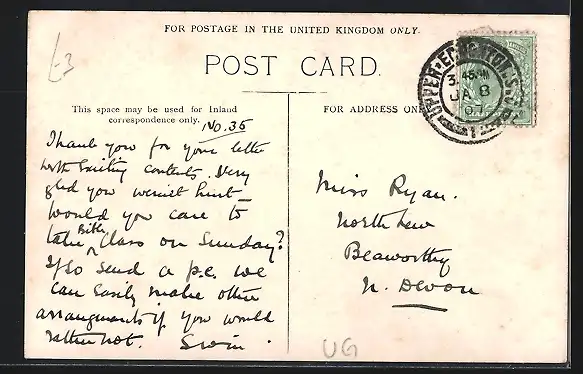 £3
FOR POSTAGE IN THE UNITED KINGDOM ONLY.
POST CARD.
This space may be used for Inland
correspondence only.
No. 35
Thank you for your letter
with exciting contents. Very
glad you weren't hurt -
Would you care to
take Bible Class on Sunday?
If so send a p.c. we
can easily make other
arrangements if you would
rather not.
FOR ADDRESS ONLY
Miss Ryan.
North Lew
Beaworthy
N. Devon
UPPER EDMONTON
3.45 PM
JA 8
07
UG